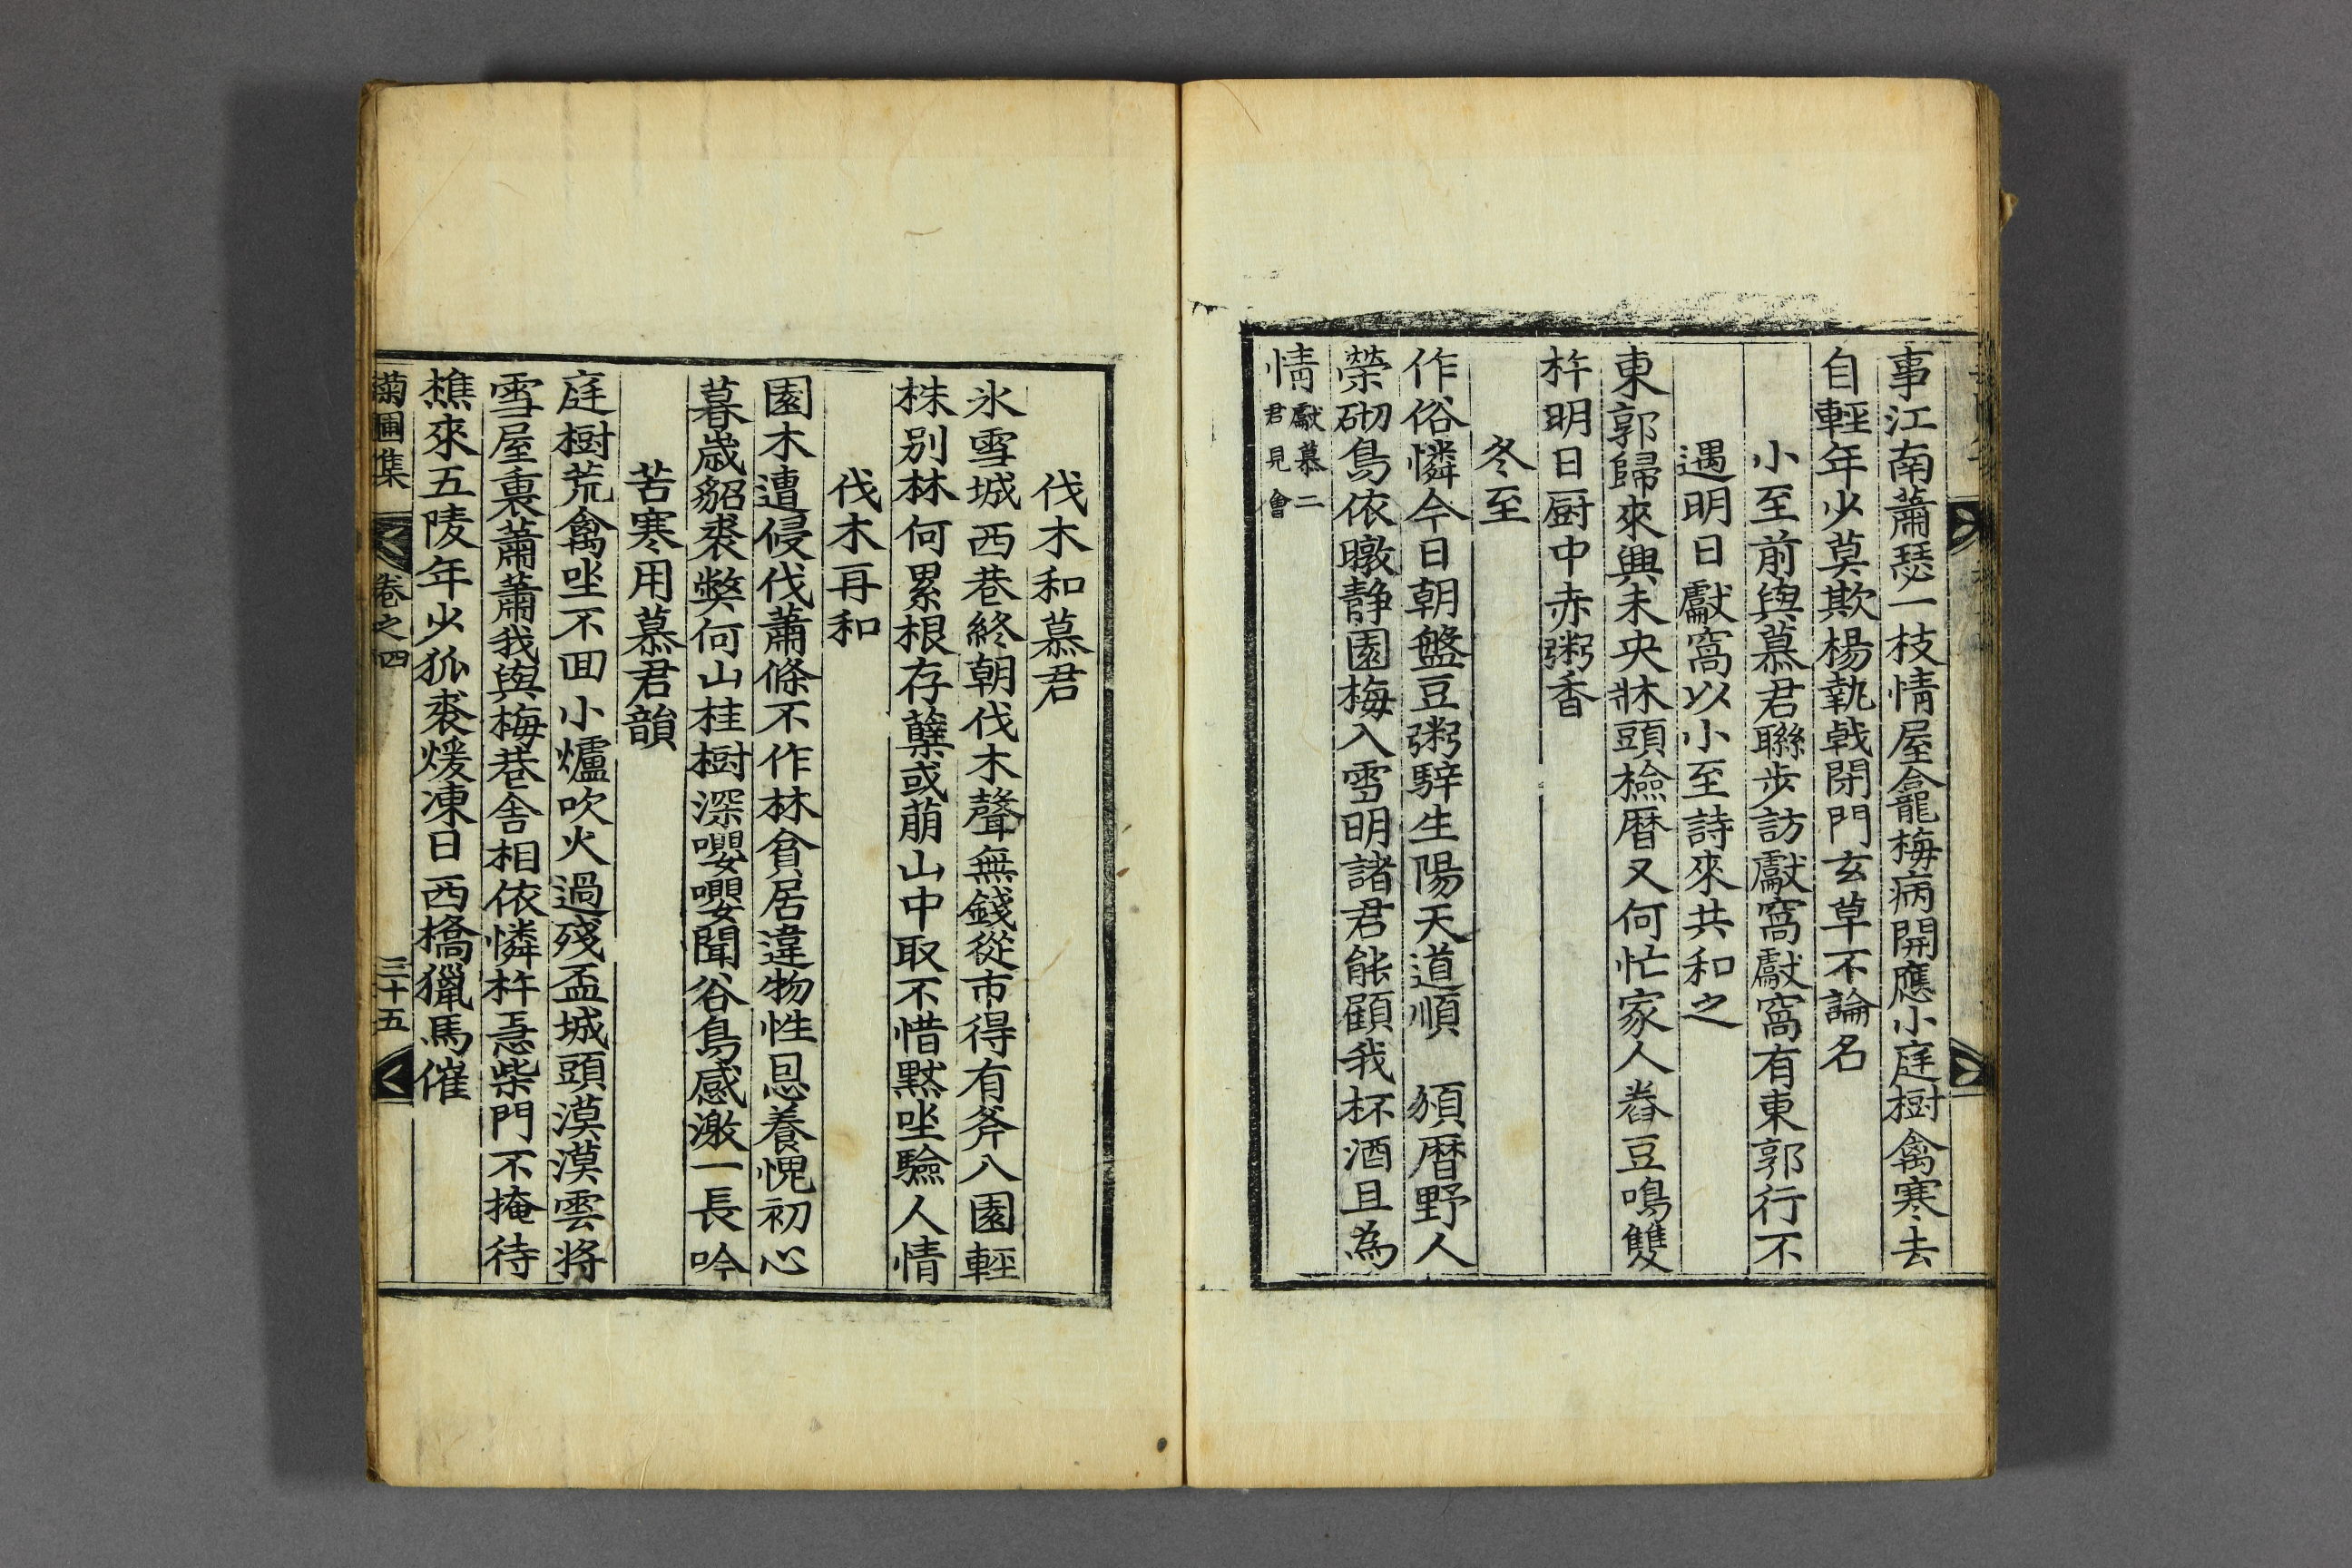 事江南蕭瑟一枝情屋龕梅病開應小庭樹禽寒去
自輕年少莫欺楊執戟閉門玄草不論名
小至前與慕君聯步訪獻窩獻窩有東郭行不
遇明日獻窩以小至詩來共和之
東郭歸來興未央牀頭檢曆又何忙家人舂豆鳴雙
杵明日厨中赤粥香
冬至
作俗憐今日朝盤豆粥騂生陽天道順 頒曆野人
榮砌鳥依暾静園梅入雪明諸君能顧我杯酒且為
情獻慕二君見會
伐木和慕君
氷雪城西巷終朝伐木聲無錢從市得有斧入園輕
株别林何累根存蘖或萠山中取不惜黙坐驗人情
伐木再和
園木遭侵伐蕭條不作林貧居違物性恩養愧初心
暮歳貂裘獘何山桂樹深嚶嚶聞谷鳥感激一長吟
苦寒用慕君韻
庭樹荒禽坐不囬小爐吹火過殘盃城頭漠漠雲将
雪屋裏蕭蕭我與梅巷舎相依憐杵急柴門不掩待
樵來五陵年少狐裘煖凍日西橋獵馬催
菊圃集 卷之四 三十五